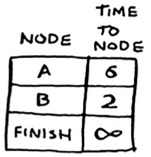 NODE TIME TO NODE
A 6
B 2
FINISH ∞